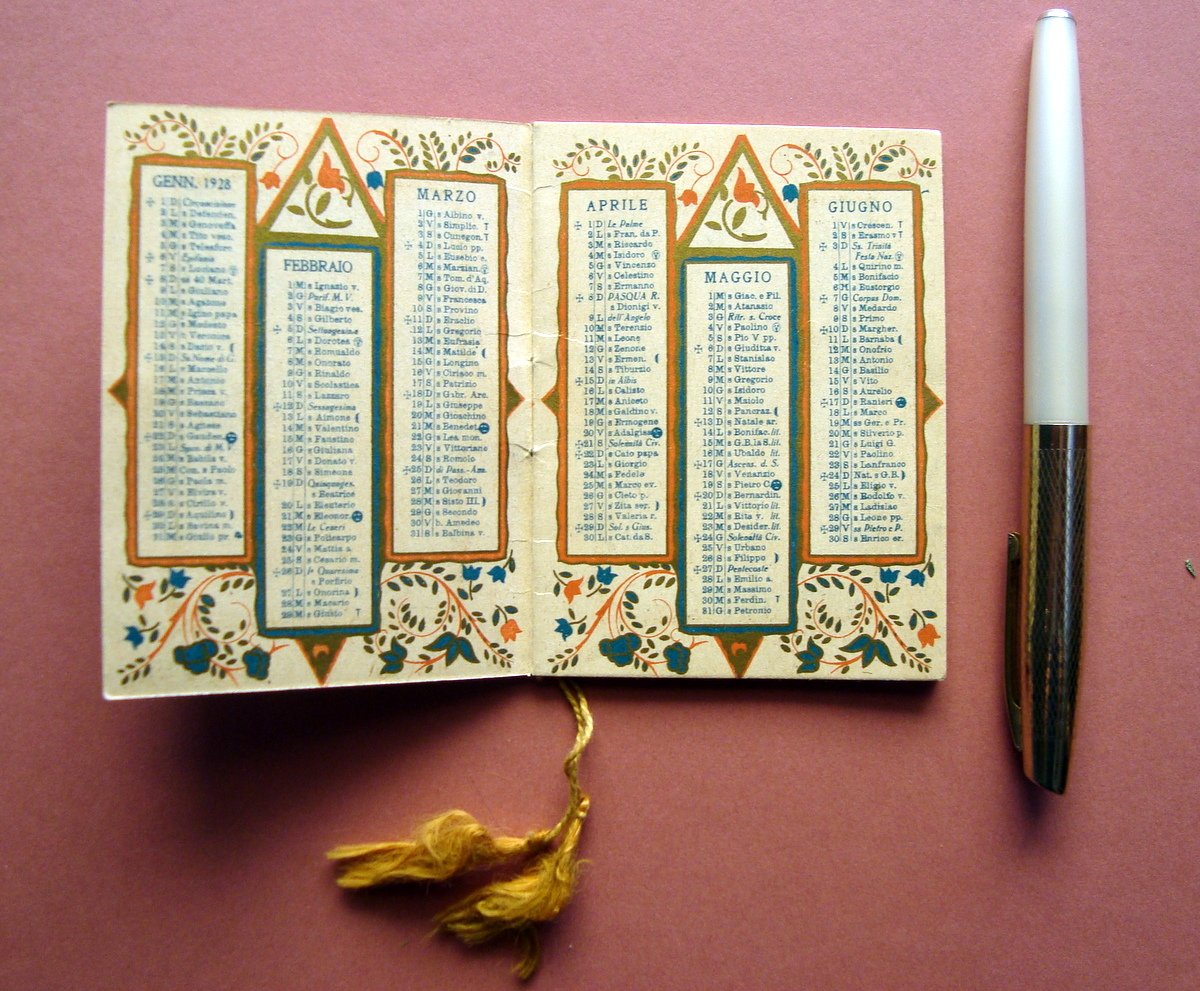 GENN. 1928
✠ 1 D Circoncisione
2 L s Defenden.
3 M s Genoveffa
4 M s Tito vesc.
5 G s Telesforo
✠ 6 V Epifania
7 S s Luciano
✠ 8 D ss 40 Mart.
9 L s Giuliano
10 M s Agatone
11 M s Igino papa
12 G s Modesto
13 V s Veronica
14 S s Dazio v.
✠ 15 D Ss. Nome di G.
16 L s Marcello
17 M s Antonio
18 M s Prisca v.
19 G s Bassano
20 V s Sebastiano
21 S s Agnese
✠ 22 D s Gauden.
23 L Spos. di M. V.
24 M s Babila v.
25 M Con. s Paolo
26 G s Paola m.
27 V s Elvira v.
28 S s Cirillo v.
✠ 29 D s Aquilino
30 L s Savina m.
31 M s Giulio pr.
FEBBRAIO
1 M s Ignazio v.
2 G Purif. M. V.
3 V s Biagio ves.
4 S s Gilberto
✠ 5 D Settuagesima
6 L s Dorotea
7 M s Romualdo
8 M s Onorato
9 G s Rinaldo
10 V s Scolastica
11 S s Lazzaro
✠ 12 D Sessagesima
13 L s Aimone
14 M s Valentino
15 M s Faustino
16 G s Giuliana
17 V s Donato v.
18 S s Simeone
✠ 19 D Quinquages.
s Beatrice
20 L s Eleuterio
21 M s Eleonor.
22 M Le Ceneri
23 G s Policarpo
24 V s Mattia a.
25 S s Cesario m.
✠ 26 D Iª Quaresima
s Porfirio
27 L s Onorina
28 M s Macario
29 M s Giusto T
MARZO
1 G s Albino v.
2 V s Simplic. T
3 S s Cunegon. T
✠ 4 D s Lucio pp.
5 L s Eusebio c.
6 M s Marzian.
7 M s Tom. d'Aq.
8 G s Giov. di D.
9 V s Francesca
10 S s Provino
✠ 11 D s Eraclio
12 L s Gregorio
13 M s Eufrasia
14 M s Matilde
15 G s Longino
16 V s Ciriaco m.
17 S s Patrizio
✠ 18 D s Gabr. Arc.
19 L s Giuseppe
20 M s Gioachino
21 M s Benedet.
22 G s Lea mon.
23 V s Vittoriano
24 S s Romolo
✠ 25 D di Pass.-Ann.
26 L s Teodoro
27 M s Giovanni
28 M s Sisto III.
29 G s Secondo
30 V b. Amedeo
31 S s Balbina v.
APRILE
✠ 1 D Le Palme
2 L s Fran. da P.
3 M s Riccardo
4 M s Isidoro
5 G s Vincenzo
6 V s Celestino
7 S s Ermanno
✠ 8 D PASQUA R.
s Dionigi v.
9 L dell'Angelo
10 M s Terenzio
11 M s Leone
12 G s Zenone
13 V s Ermen.
14 S s Tiburzio
✠ 15 D in Albis
16 L s Calisto
17 M s Aniceto
18 M s Galdino v.
19 G s Ermogene
20 V s Adalgisa
✠ 21 S Solennità Civ.
✠ 22 D s Caio papa
23 L s Giorgio
24 M s Fedele
25 M s Marco ev.
26 G s Cleto p.
27 V s Zita ser.
28 S s Valeria r.
✠ 29 D Sol. s Gius.
30 L s Cat. da S.
MAGGIO
1 M s Giac. e Fil.
2 M s Atanasio
3 G Ritr. s. Croce
4 V s Paolino
5 S s Pio V pp.
✠ 6 D s Giuditta v.
7 L s Stanislao
8 M s Vittore
9 M s Gregorio
10 G s Isidoro
11 V s Maiolo
12 S s Pancraz.
✠ 13 D s Natale ar.
14 L s Bonifac. lit.
15 M s G.B. la S. lit.
16 M s Ubaldo lit.
✠ 17 G Ascens. d. S.
18 V s Venanzio
19 S s Pietro C.
✠ 20 D s Bernardin.
21 L s Vittorio lit.
22 M s Rita v. lit.
23 M s Desider. lit.
✠ 24 G Solennità Civ.
25 V s Urbano
26 S s Filippo
✠ 27 D Pentecoste
28 L s Emilio a.
29 M s Massimo
30 M s Ferdin. T
31 G s Petronio
GIUGNO
1 V s Crescen. T
2 S s Erasmo v T
✠ 3 D Ss. Trinità
Festa Naz.
4 L s Quirino m.
5 M s Bonifacio
6 M s Eustorgio
✠ 7 G Corpus Dom.
8 V s Medardo
9 S s Primo
✠ 10 D s Margher.
11 L s Barnaba
12 M s Onofrio
13 M s Antonio
14 G s Basilio
15 V s Vito
16 S s Aurelio
✠ 17 D s Ranieri
18 L s Marco
19 M ss Ger. e Pr.
20 M s Silverio p.
21 G s Luigi G.
22 V s Paolino
23 S s Lanfranco
✠ 24 D Nat. s G.B.
25 L s Eligio v.
26 M s Rodolfo v.
27 M s Ladislao
28 G s Leone pp.
✠ 29 V ss Pietro e P.
30 S s Enrico er.